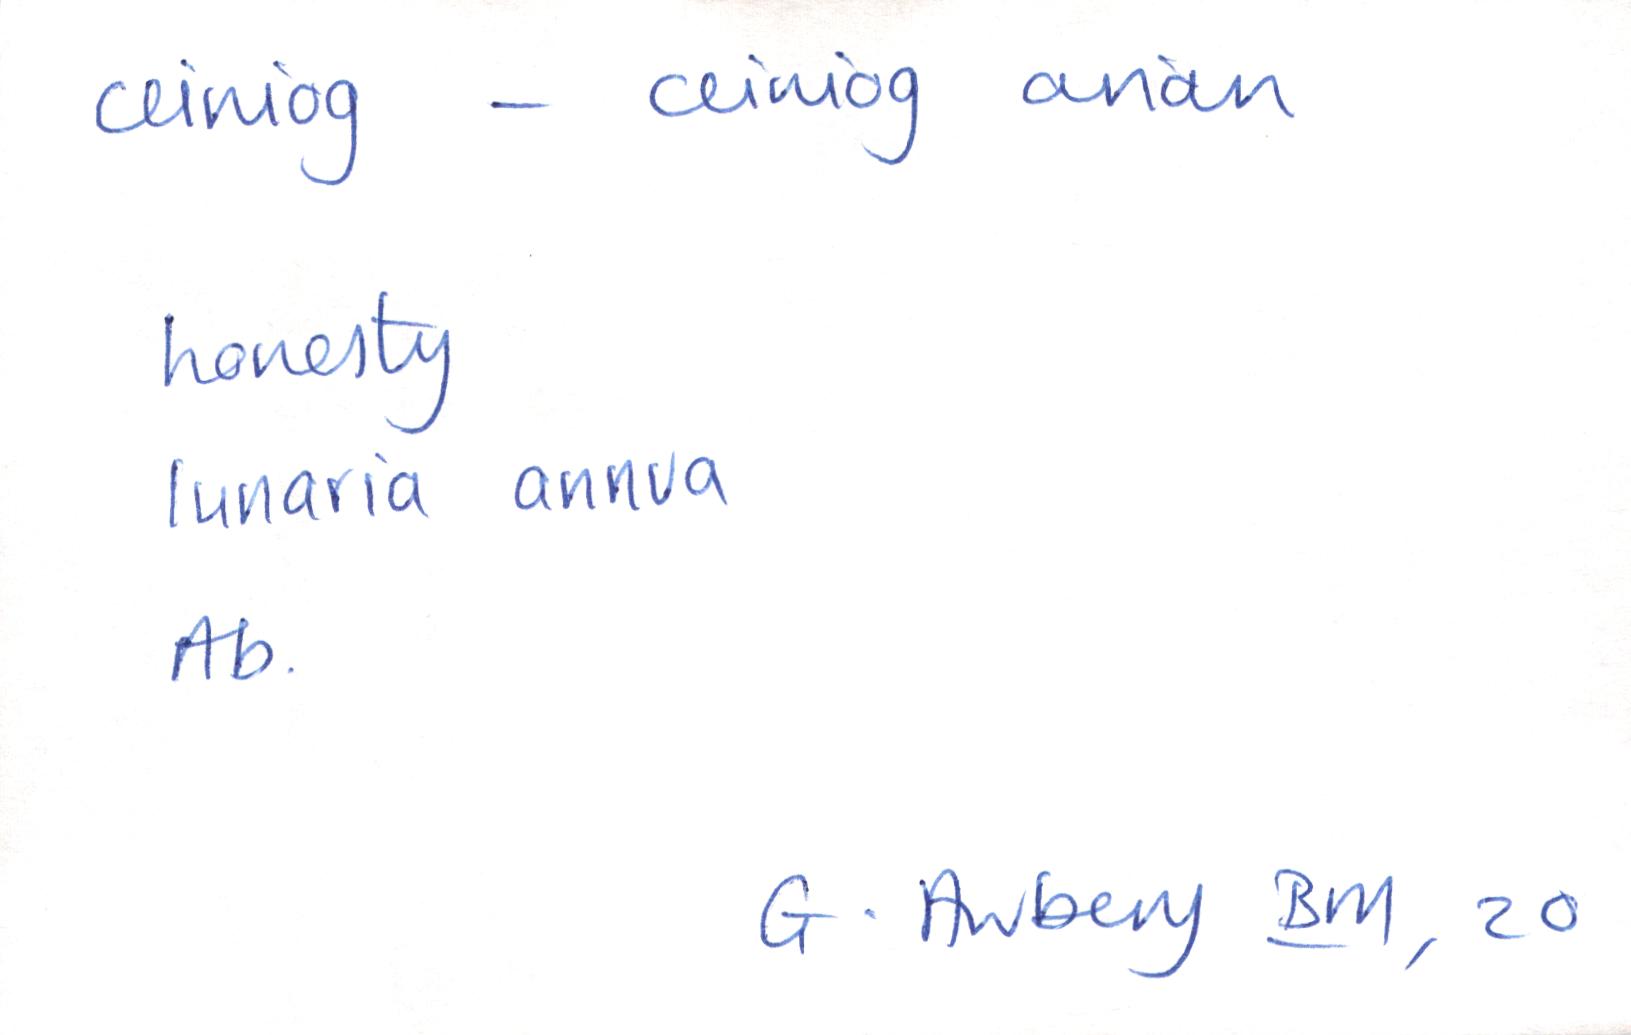 ceiniog – ceiniog arian
honesty
lunaria annua
Ab.
G. Awbery BM, 20